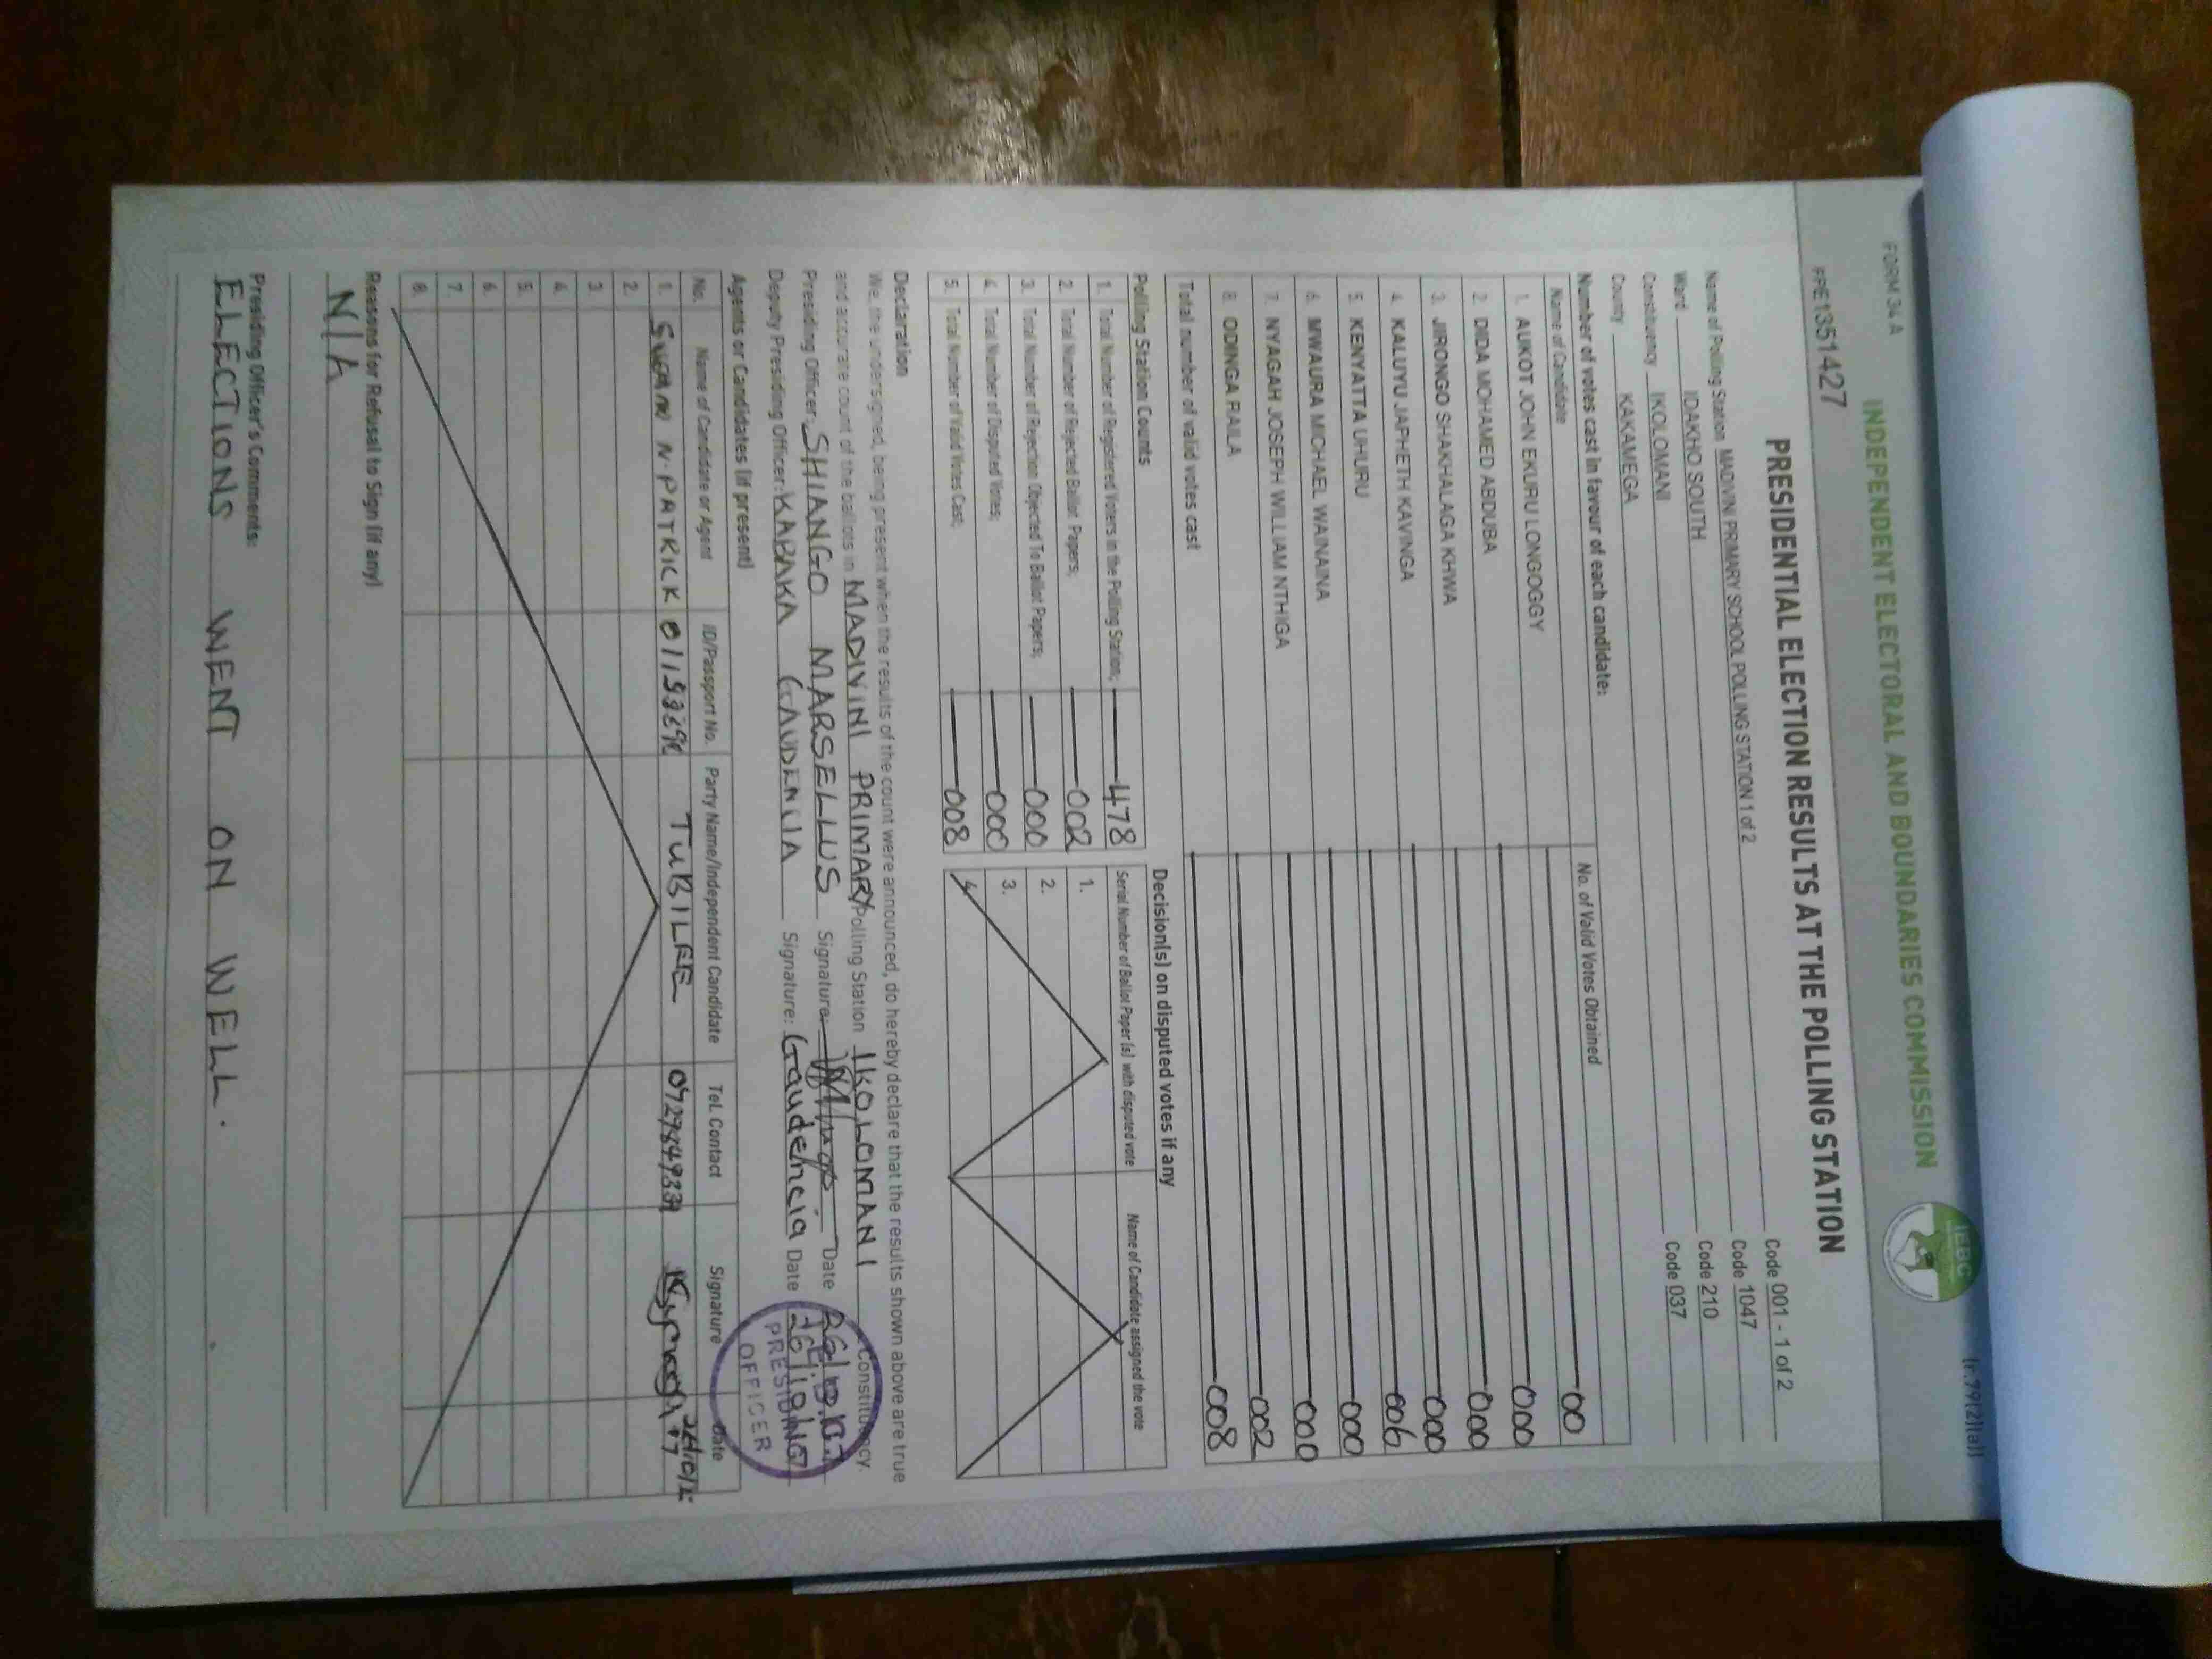 FORM 34 A
(r.79(2)(a))
INDEPENDENT ELECTORAL AND BOUNDARIES COMMISSION
IEBC
FPE1351427
PRESIDENTIAL ELECTION RESULTS AT THE POLLING STATION
Name of Polling Station MADIVINI PRIMARY SCHOOL POLLING STATION 1 of 2 Code 001 - 1 of 2
Ward IDAKHO SOUTH Code 1047
Constituency IKOLOMANI Code 210
County KAKAMEGA Code 037
Number of votes cast in favour of each candidate:
Name of Candidate No. of Valid Votes Obtained
1. AUKOT JOHN EKURU LONGOGGY 00
2. DIDA MOHAMED ABDUBA 000
3. JIRONGO SHAKHALAGA KHWA 000
4. KALUYU JAPHETH KAVINGA 000
5. KENYATTA UHURU 006
6. MWAURA MICHAEL WAINAINA 000
7. NYAGAH JOSEPH WILLIAM NTHIGA 000
8. ODINGA RAILA 002
Total number of valid votes cast 008
Polling Station Counts
1. Total Number of Registered Voters in the Polling Station; 478
2. Total Number of Rejected Ballot Papers; 002
3. Total Number of Rejection Objected To Ballot Papers; 000
4. Total Number of Disputed Votes; 000
5. Total Number of Valid Votes Cast; 008
Decision(s) on disputed votes if any
Serial Number of Ballot Paper (s) with disputed vote Name of Candidate assigned the vote
1.
2.
3.
4.
Declaration
We, the undersigned, being present when the results of the count were announced, do hereby declare that the results shown above are true
and accurate count of the ballots in MADIVINI PRIMARY Polling Station IKOLOMANI Constituency.
Presiding Officer: SHIANGO MARSELLUS Signature: Date
Deputy Presiding Officer: KABAKA GAUDENCIA Signature: Gaudencia Date
PRESIDING
OFFICER
Agents or Candidates (if present)
No. Name of Candidate or Agent ID/Passport No. Party Name/Independent Candidate Tel. Contact Signature Date
1. N. PATRICK TUBILEE
2.
3.
4.
5.
6.
7.
8.
Reasons for Refusal to Sign (if any)
N/A
Presiding Officer's Comments:
ELECTIONS WENT ON WELL.